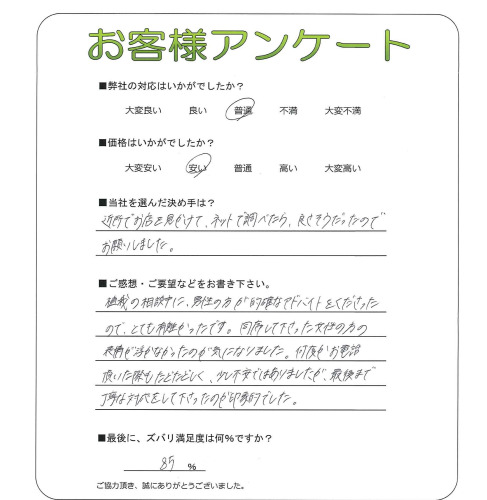 お客様アンケート
■弊社の対応はいかがでしたか？
大変良い 良い 普通 不満 大変不満
■価格はいかがでしたか？
大変安い 安い 普通 高い 大変高い
■当社を選んだ決め手は？
近所でお店を見かけて、ネットで調べたら、良さそうだったので
お願いしました。
■ご感想・ご要望などをお書き下さい。
の相談中に、男性の方が的確なアドバイスをくださった
ので、とても有難かったです。同席して下さった女性の方の
表情が浮かなかったのが気になりました。何度かお電話
頂いた際もたどたどしく、少し不安ではありましたが、最後まで
丁寧な対応をして下さったのが印象的でした。
■最後に、ズバリ満足度は何％ですか？
85 ％
ご協力頂き、誠にありがとうございました。